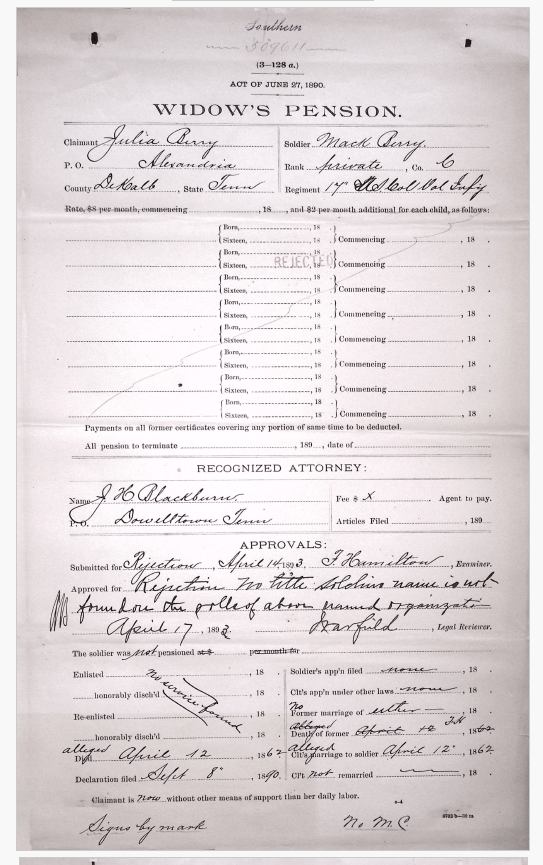 Southern
(3—128 a.)
ACT OF JUNE 27, 1890.
WIDOW'S PENSION.
Claimant Julia Berry
Soldier Mack Berry.
P. O. Alexandria
Rank private, Co. C
County DeKalb, State Tenn
Regiment 17" U.S. Col Vol Infy
Rate, $8 per month, commencing , 18 , and $2 per month additional for each child, as follows:
Born, , 18 .
Sixteen, , 18 . Commencing , 18 .
Born, , 18 .
Sixteen, , 18 . Commencing , 18 .
REJECTED
Born, , 18 .
Sixteen, , 18 . Commencing , 18 .
Born, , 18 .
Sixteen, , 18 . Commencing , 18 .
Born, , 18 .
Sixteen, , 18 . Commencing , 18 .
Born, , 18 .
Sixteen, , 18 . Commencing , 18 .
Born, , 18 .
Sixteen, , 18 . Commencing , 18 .
Born, , 18 .
Sixteen, , 18 . Commencing , 18 .
Payments on all former certificates covering any portion of same time to be deducted.
All pension to terminate , 189 , date of
RECOGNIZED ATTORNEY:
Name J. H. Blackburn
Fee $ X Agent to pay.
P. O. Dowelltown Tenn
Articles Filed , 189
APPROVALS:
Submitted for Rejection, April 14, 1893, T. Hamilton, Examiner.
Approved for Rejection No title soldiers name is not
found on the rolls of above named organization
April 17, 1893. Warfield, Legal Reviewer.
The soldier was not pensioned as a per month for
Enlisted , 18 .
Soldier's app'n filed none , 18 .
no service found
honorably disch'd , 18 .
Clt's app'n under other laws none , 18 .
Re-enlisted , 18 .
No Former marriage of either , 18 .
honorably disch'd , 18 .
alleged Death of former April 12 T.H , 1862
alleged Died April 12 1862
alleged Clt's marriage to soldier April 12" , 1862
Declaration filed Sept 8" 1890.
Clt. not remarried , 18 .
Claimant is now without other means of support than her daily labor.
Signs by mark
No M.C.